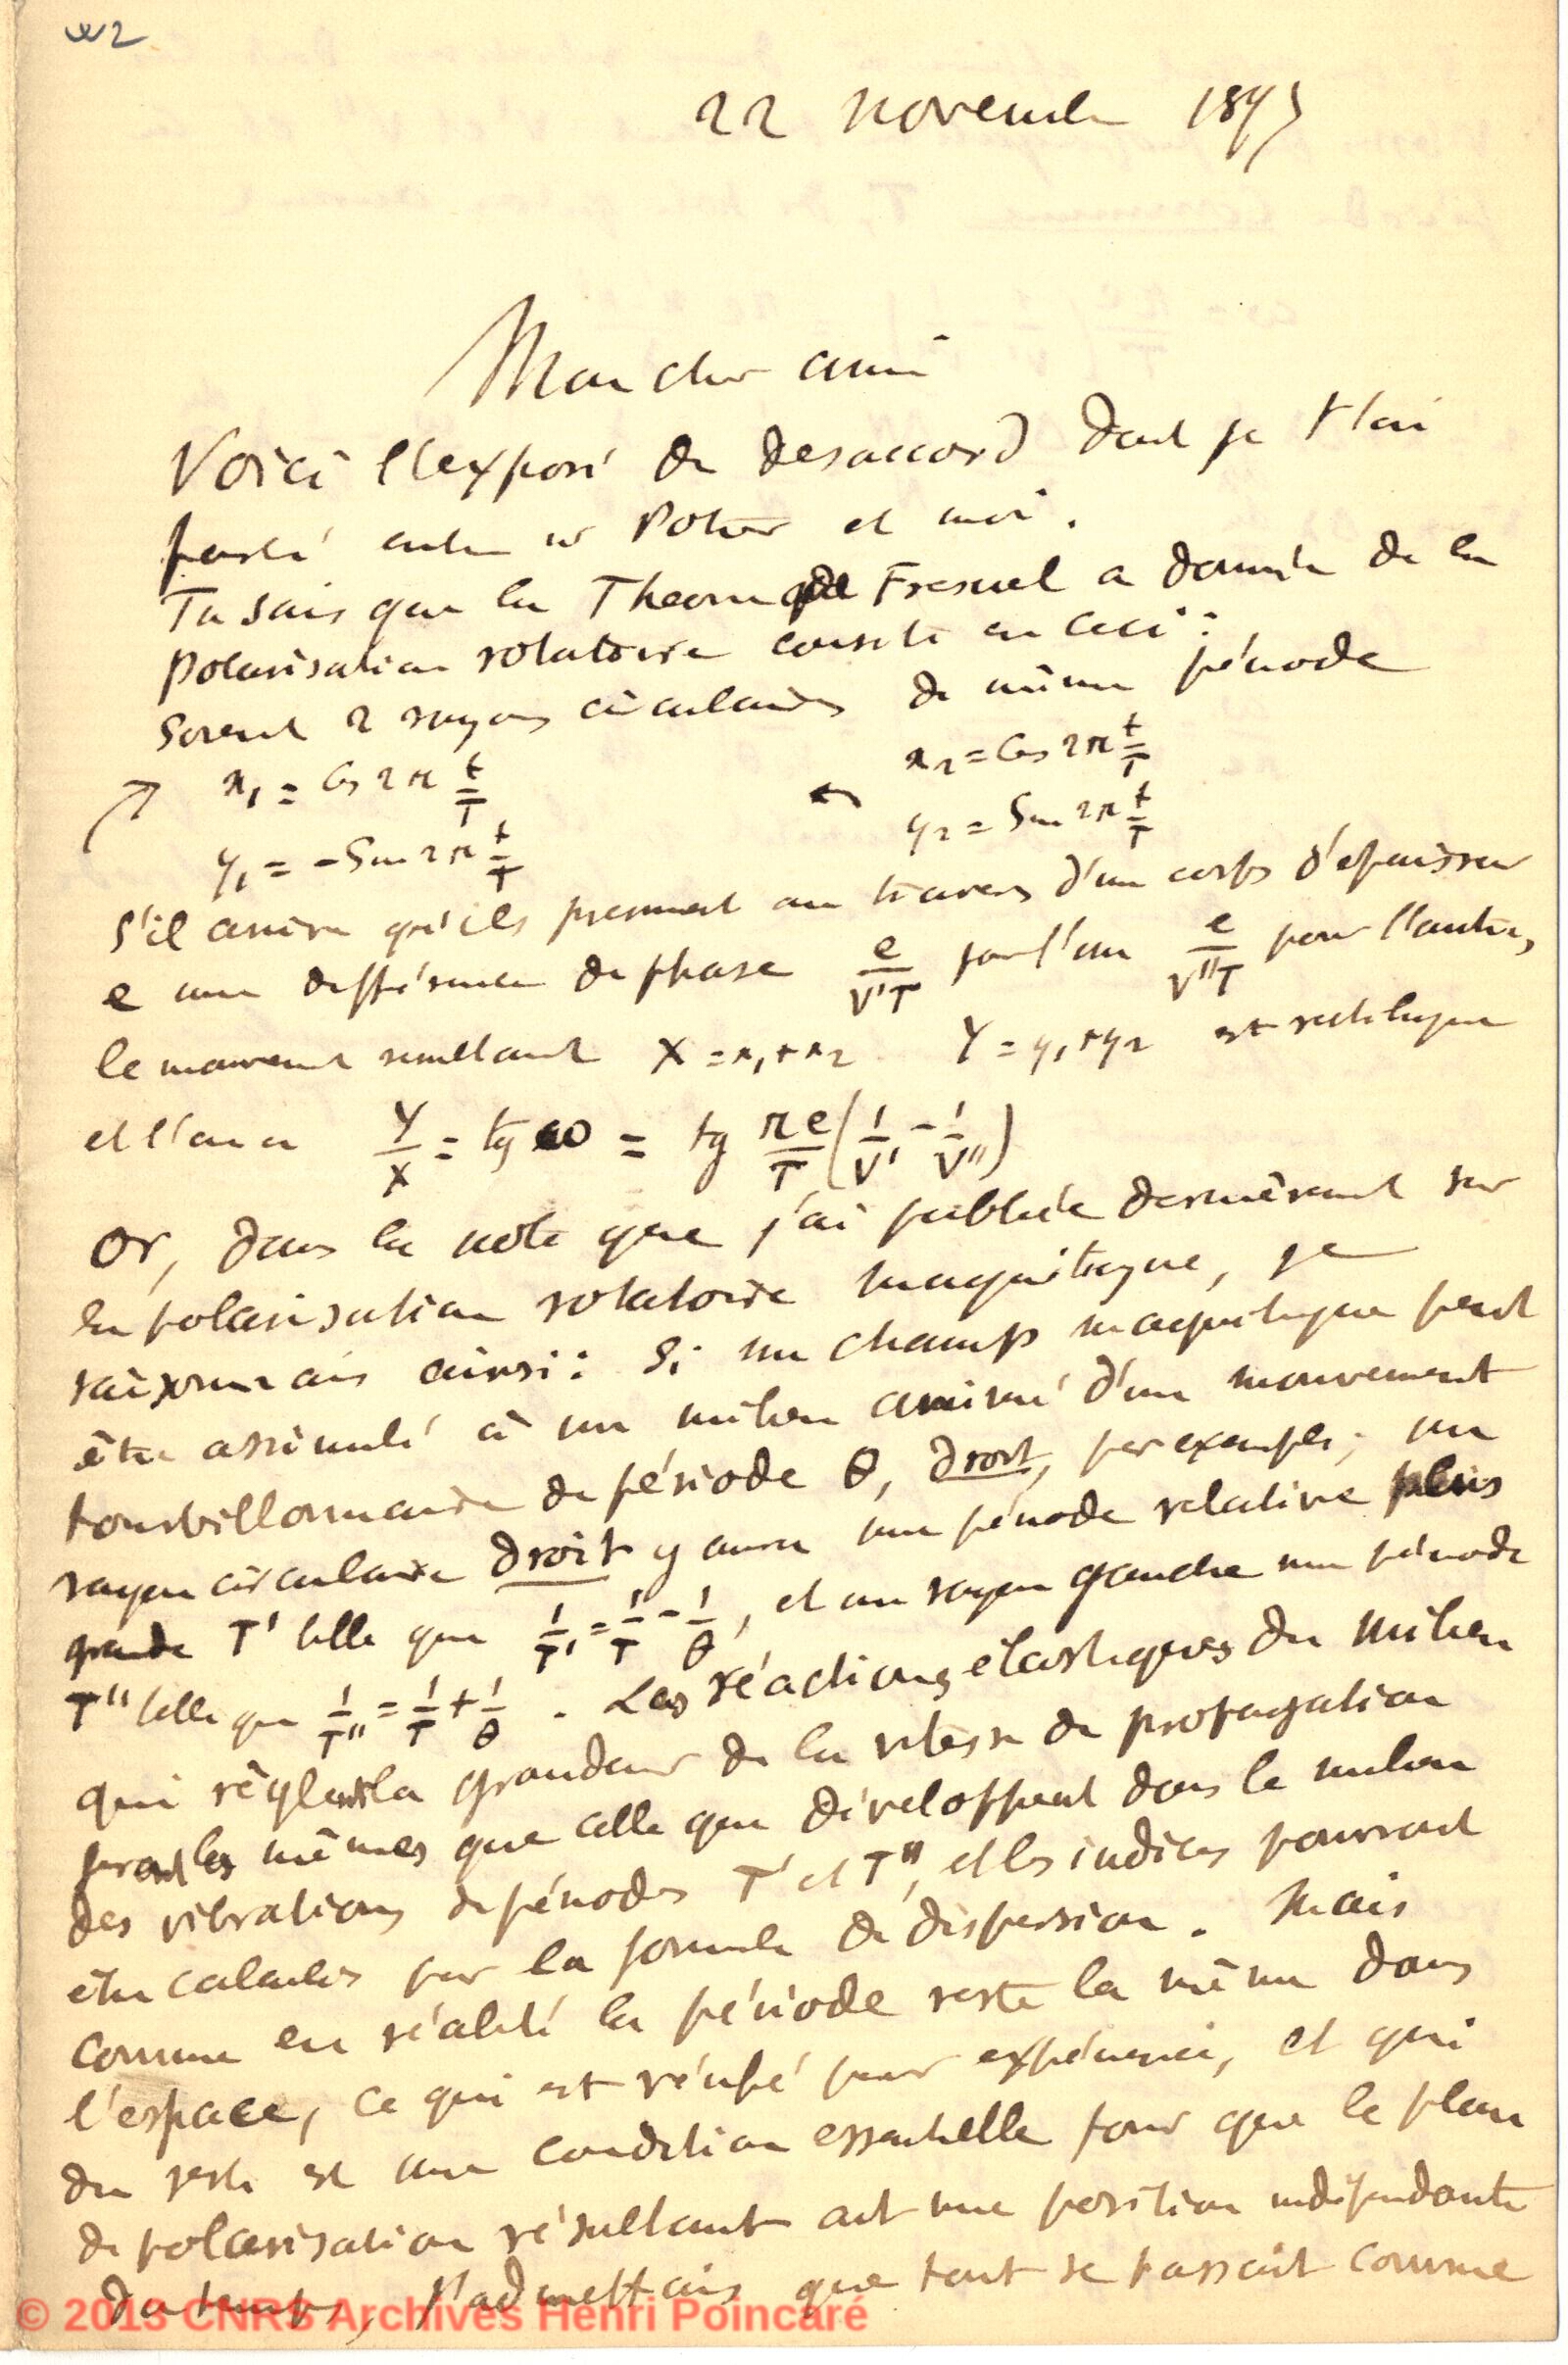 22 novembre 1897
Mon cher ami
Voici l'exposé du desaccord dont je t'ai
parlé entre Mr Potier et moi.
Tu sais que la Theorie de Fresnel a donnée de la
polarisation rotatoire consiste en ceci :
Soient 2 rayons circulaires de même période
x₁ = Cos 2π t/T x₂ = Cos 2π t/T
y₁ = - Sin 2π t/T y₂ = Sin 2π t/T
S'il arrive qu'ils prennent au travers d'un corps d'épaisseur
e une différence de phase e/V'T pour l'un e/V''T pour l'autre,
le mouvement resultant X = x₁ + x₂ Y = y₁ + y₂ est rectiligne
et l'on a Y/X = tg ω = tg πe/T (1/V' - 1/V'')
Or, dans la note que j'ai publiée dernièrement sur
la polarisation rotatoire magnétique, je
raisonnais ainsi : Si un champ magnétique peut
être assimilé à un milieu animé d'un mouvement
tourbillonnaire de période θ, droit, par exemple, un
rayon circulaire droit y aura une période relative plus
grande T' telle que 1/T' = 1/T - 1/θ, et un rayon gauche une période
T'' telle que 1/T'' = 1/T + 1/θ. Les réactions élastiques du milieu
qui règlent la grandeur de la vitesse de propagation
seront les mêmes que celle que développent dans le milieu
des vibrations de périodes T' et T'', et les indices pourront
être calculés par la formule de dispersion. Mais
comme en réalité la période reste la même dans
l'espace, ce qui est vérifié par expérience, et qui
du reste est une condition essentielle pour que le plan
de polarisation résultant ait une position indépendante
du temps, j'admettais que tout se passait comme
© 2015 CNRS Archives Henri Poincaré